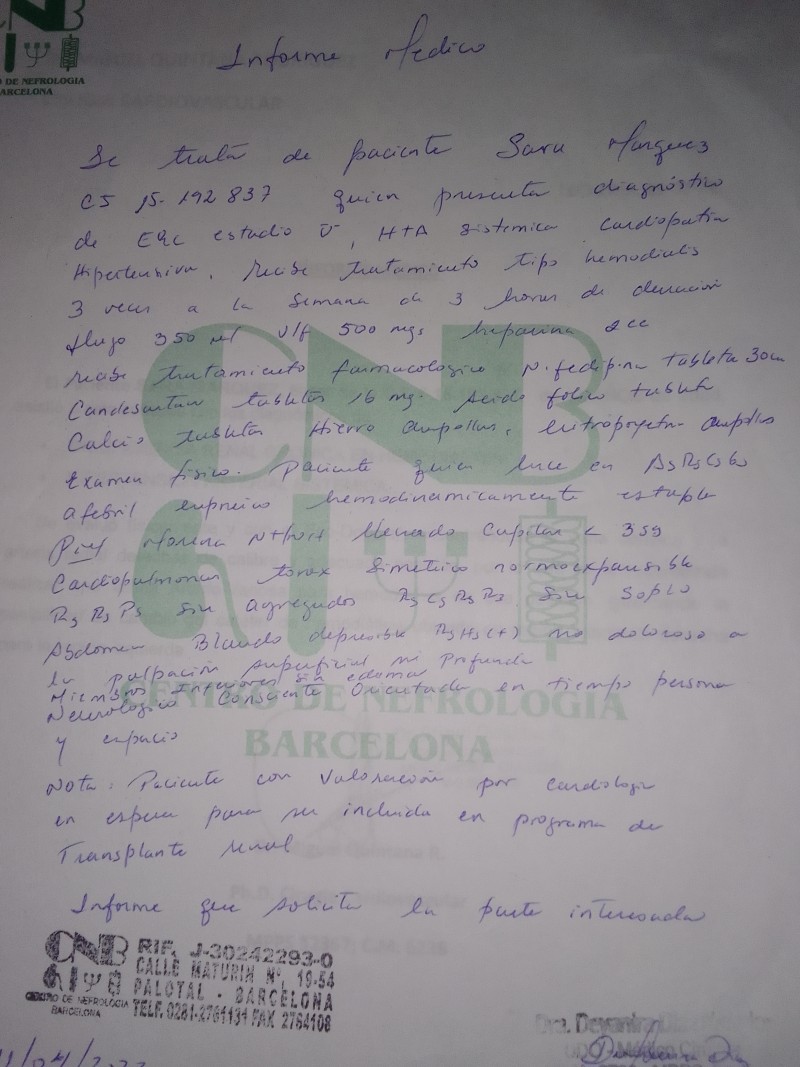 CNB
DE NEFROLOGIA
BARCELONA
Informe Medico
Se trata de paciente Sara Marquez
CI 15-192 837 quien presenta diagnóstico
de ERC estadio V, HTA Sistemica Cardiopatia
Hipertensiva. recibe tratamiento tipo hemodialis
3 veces a la semana de 3 horas de duración
flujo 350 ml Ulf 500 mgs heparina 2cc
recibe tratamiento farmacologico Nifedipina tableta 30
Candesartan tabletas 16 mg. Acido folico tableta
Calcio tabletas Hierro ampollas, eritropoyetina ampollas
Examen fisico. Paciente quien luce en
afebril eupneico hemodinamicamente estable
Piel Morena llenado Capilar < 3sg
Cardiopulmonar torax simetrico normoexpansible
Rs Rs Ps sin agregados Rs Cs Rs Rs Sin Soplo
Abdomen Blando depresible RsHs(+) no doloroso a
la palpación superficial ni Profunda
Miembros Inferiores sin edema
Neurologico Consciente Orientada en tiempo persona
y espacio
CENTRO DE NEFROLOGIA
BARCELONA
Nota: Paciente con Valoración por cardiologia
en espera para ser incluida en programa de
Transplante renal
Informe que solicita la parte interesada
CNB
CENTRO DE NEFROLOGIA
BARCELONA
RIF. J-30242293-0
CALLE MATURIN Nº. 19-54
PALOTAL - BARCELONA
TELF. 0281-2761131 FAX 2764108
Dra. Deyanira